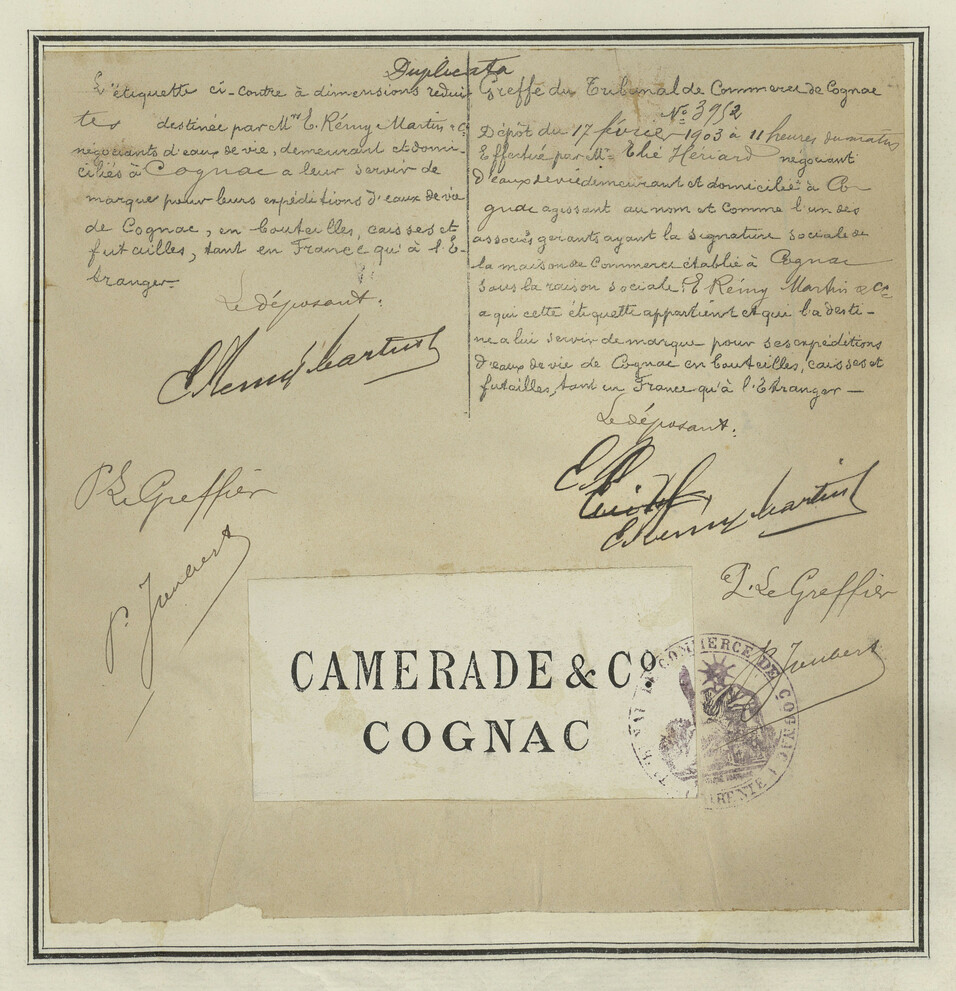 Duplicata
L'étiquette ci-contre à dimensions rédui
tes destinée par Mrs E. Rémy Martin & Co
négociants d'eaux de vie, demeurant et domi-
ciliés à Cognac a leur servir de
marque pour leurs expéditions d'eaux de vie
de Cognac, en bouteilles, caisses et
futailles, tant en France qu'à l'É-
tranger
Le déposant:
E. Remy Martin
P. Le Greffier
P. Joubert
Greffe du Tribunal de Commerce de Cognac
No 3952
Dépôt du 17 février 1903 à 11 heures du matin
Effectué par Mr Elie Hériard négociant
d'eaux de vie demeurant et domicilié à Co-
gnac agissant au nom et comme l'un des
associés gérants ayant la signature sociale de
la maison de Commerce établie à Cognac
sous la raison sociale: E. Rémy Martin & Co
a qui cette étiquette appartient et qui l'a desti-
née a lui servir de marque pour ses expéditions
d'eaux de vie de Cognac en bouteilles, caisses et
futailles, tant en France qu'à l'Étranger —
Le déposant:
E. Remy Martin
P. Le Greffier
P. Joubert
CAMERADE & Co.
COGNAC
COMMERCE DE COGNAC